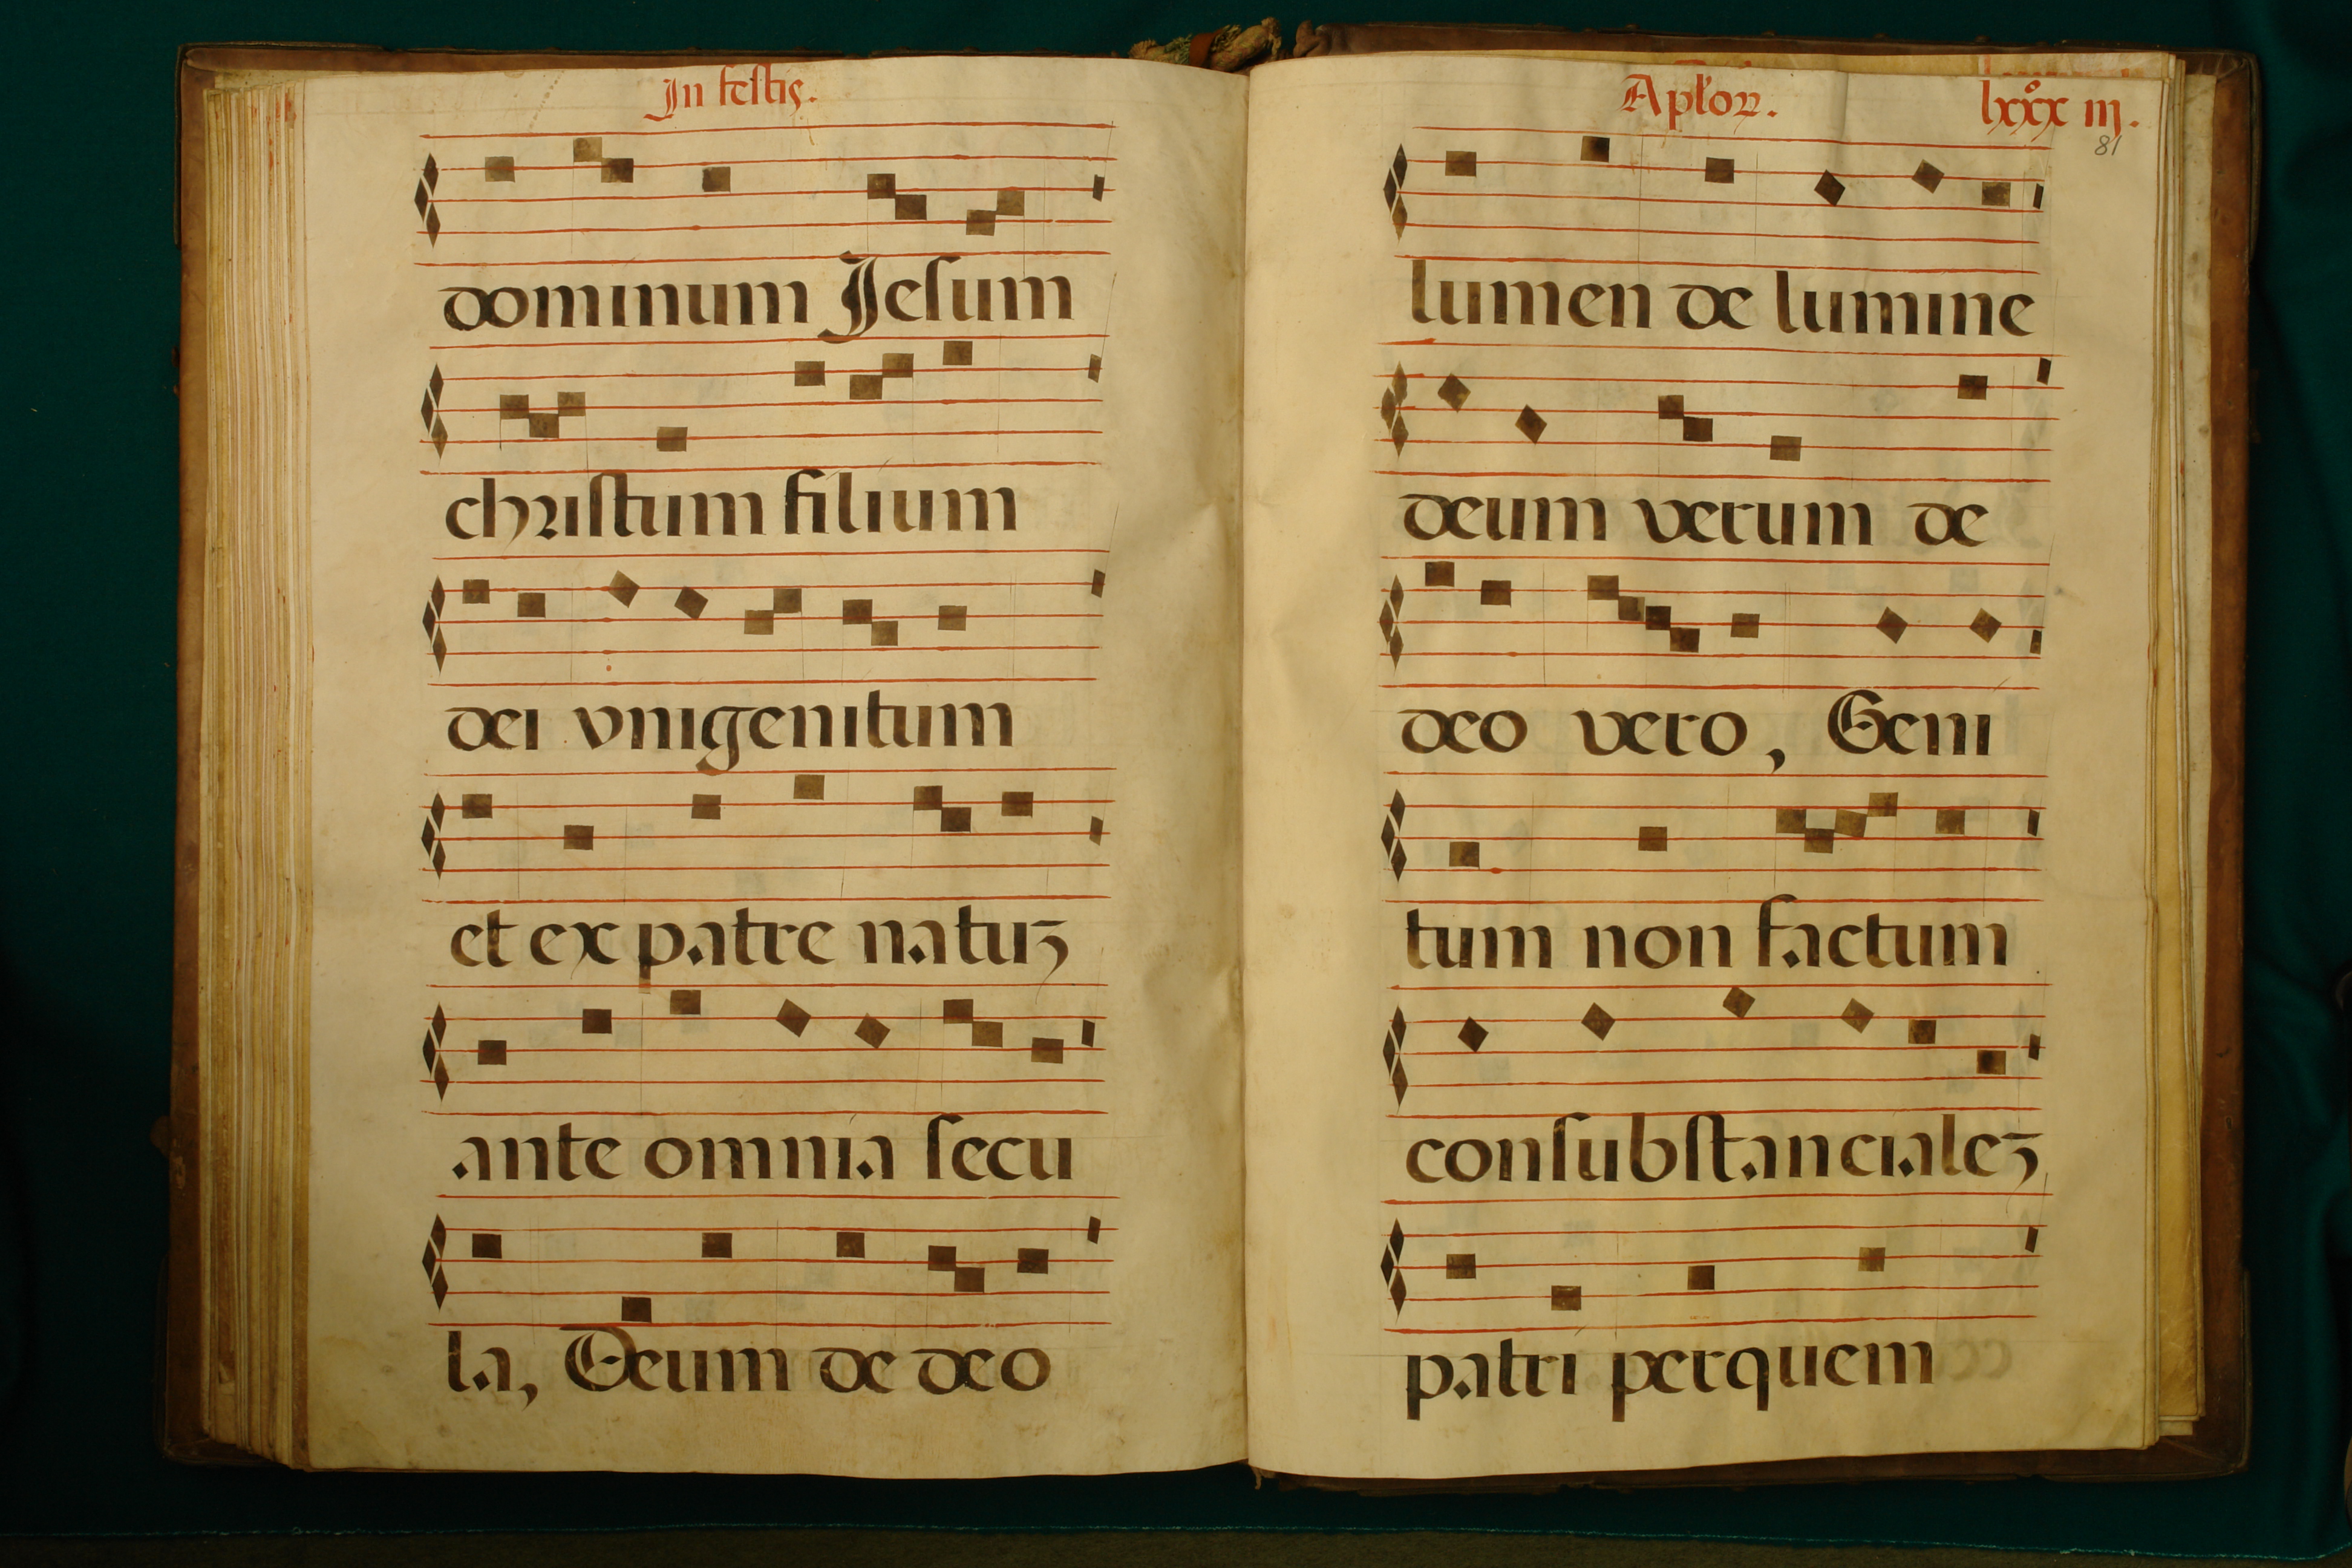 In festis.
dominum Jesum
christum filium
dei vnigenitum
et ex patre natuʒ
ante omnia secu
la, Deum de deo
Aplʼoꝝ. lxxxiij.
81
lumen de lumine
deum verum de
deo vero, Geni
tum non factum
consubstancialeʒ
patri perquem